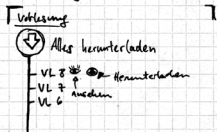 Vorlesung
Alles herunterladen
VL 8 Herunterladen
VL 7 Ansehen
VL 6